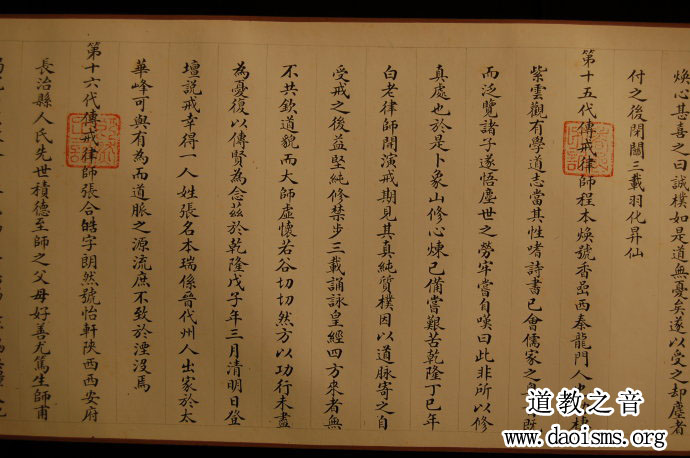 煥心甚喜之曰誠樸如是道無憂矣遂以受之却塵者
付之後閉關三載羽化昇仙
第十五代傳戒律師程本煥號香嵒西秦龍門人
紫雲觀有學道志當其性嗜詩書已會儒家之
而泛覽諸子遂悟塵世之勞牢嘗自嘆曰此非所以修
真處也於是卜象山修心煉己備嘗艱苦乾隆丁巳年
白老律師開演戒期見其真純質樸因以道脈寄之自
受戒之後益堅純修禁步三載誦詠皇經四方來者無
不共欽道貌而大師虛懷若谷切切然方以功行未盡
為憂復以傳賢為念茲於乾隆戊子年三月清明日登
壇說戒幸得一人姓張名本瑞係晉代州人出家於太
華峰可與有為而道脈之源流庶不致於湮沒焉
第十六代傳戒律師張合皓字朗然號怡軒陝西西安府
長治縣人氏先世積德至師之父母好善尤篤生師甫
道教之音
www.daoisms.org